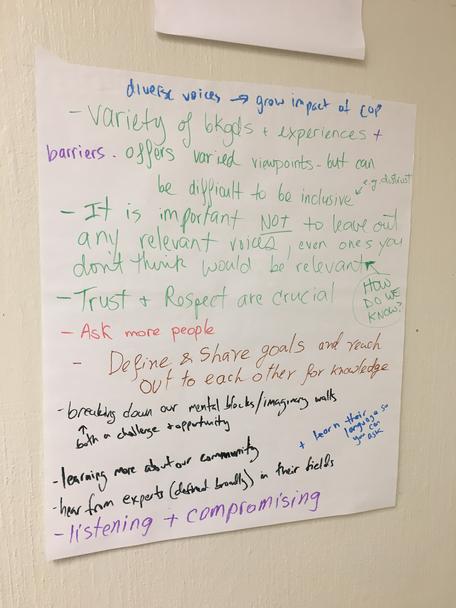 diverse voices → grow impact of COP
- Variety of bkgds + experiences +
barriers. offers varied viewpoints - but can
be difficult to be inclusive
e.g. distrust
- It is important NOT to leave out
any relevant voices, even ones you
don't think would be relevant
HOW
DO WE
KNOW?
- Trust + Respect are crucial
- Ask more people
- Define & Share goals and reach
out to each other for knowledge
- breaking down our mental blocks/imaginary walls
↑ both a challenge + opportunity
+ learn their
language so
you can
ask
- learning more about our community
- hear from experts (defined broadly) in their fields
- listening + compromising